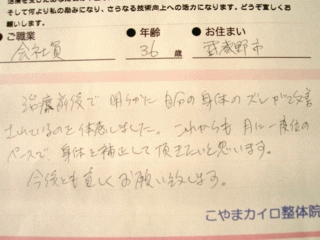 そして何より私の励みになり、さらなる技術向上への活力になります。どうぞ宜しくお
願いします。
●ご職業 ●年齢 ●お住い
会社員 36 歳 武蔵野市
治療前後で明らかに自分の身体のズレが改善
されているのを体感しました。これからも月に一度位の
ペースで身体を補正して頂きたいと思います。
今後とも宜しくお願い致します。
こやまカイロ整体院